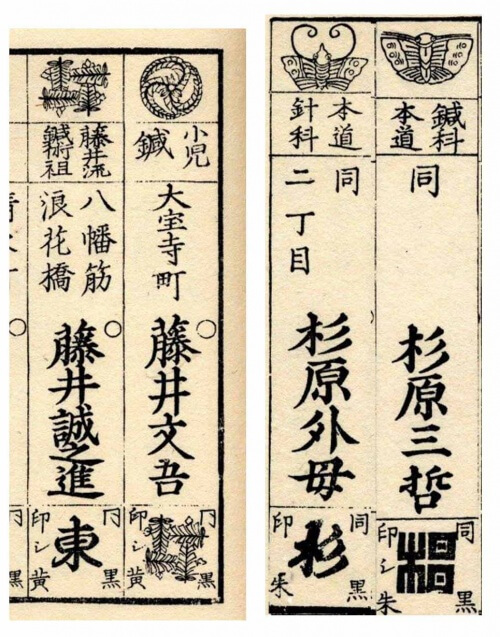 鍼科
本道
同
杉原三哲
同黒
印シ朱
本道
針科
同
二丁目
杉原外毋
同黒
杉
印朱
小児
鍼
大宝寺町
藤井文吾
冂黒
印シ黄
藤井流
鍼術祖
八幡筋
浪花橋
藤井誠之進
冂黒
東
印シ黄